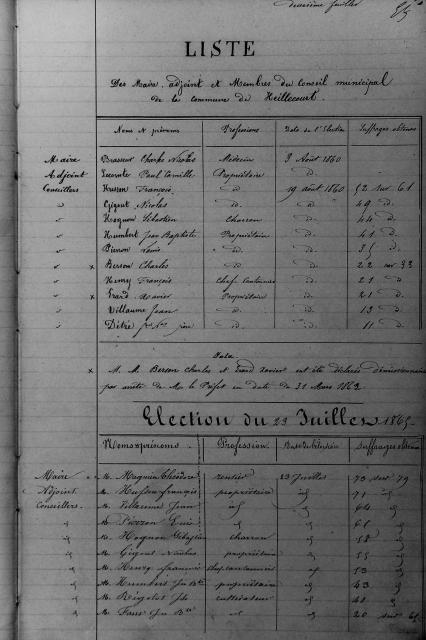 deuxième feuillet
LISTE
Des Maire, adjoint et Membres du Conseil municipal
de la commune de Heillecourt.
Noms et prénoms Professions Date de l'Election Suffrages obtenus
Maire Brasseur Charles Nicolas Médecin 8 Août 1860
Adjoint Lecomte Paul Camille Propriétaire d.
Conseillers Husson François d. 19 août 1860 52 sur 61
" Gigout Nicolas d. d. 49 d.
" Hoquon Sébastien Charron d. 44 d.
" Humbert Jean Baptiste Propriétaire d. 41 d.
" Pierron Louis d. d. 35 d.
" x Berson Charles d. d. 22 sur 33
" Henry François Chef Cantonnier d. 21 d.
" x Grard Xavier Propriétaire d. 21 d.
" Villaume Jean d. d. 13 d.
" Détré d. d. 11 d.
x M. M. Berson Charles et Grard Xavier ont été déclarés démissionnaires
par arrêté de Mr le Préfet en date de 31 Mars 1863
Election du 23 Juillet 1865
Noms & prénoms Profession Date de l'élection Suffrages obtenus
Maire M. Magnien Théodore rentier 23 Juillet 73 sur 79
Adjoint M. Husson françois propriétaire id 71 id
Conseillers M. Villaume Jean id id 64 id
id M. Pierron Louis id id 61 id
id M. Hoquon Sébastien charron id 58 id
id M. Gigout Nicolas propriétaire id 55 id
id M. Henry francois chef cantonnier id 53 id
id M. Humbert Jn Bte propriétaire id 43 id
id M. Rigolot Jh cultivateur id 41 id
id M. Jn Bte id id 20 sur